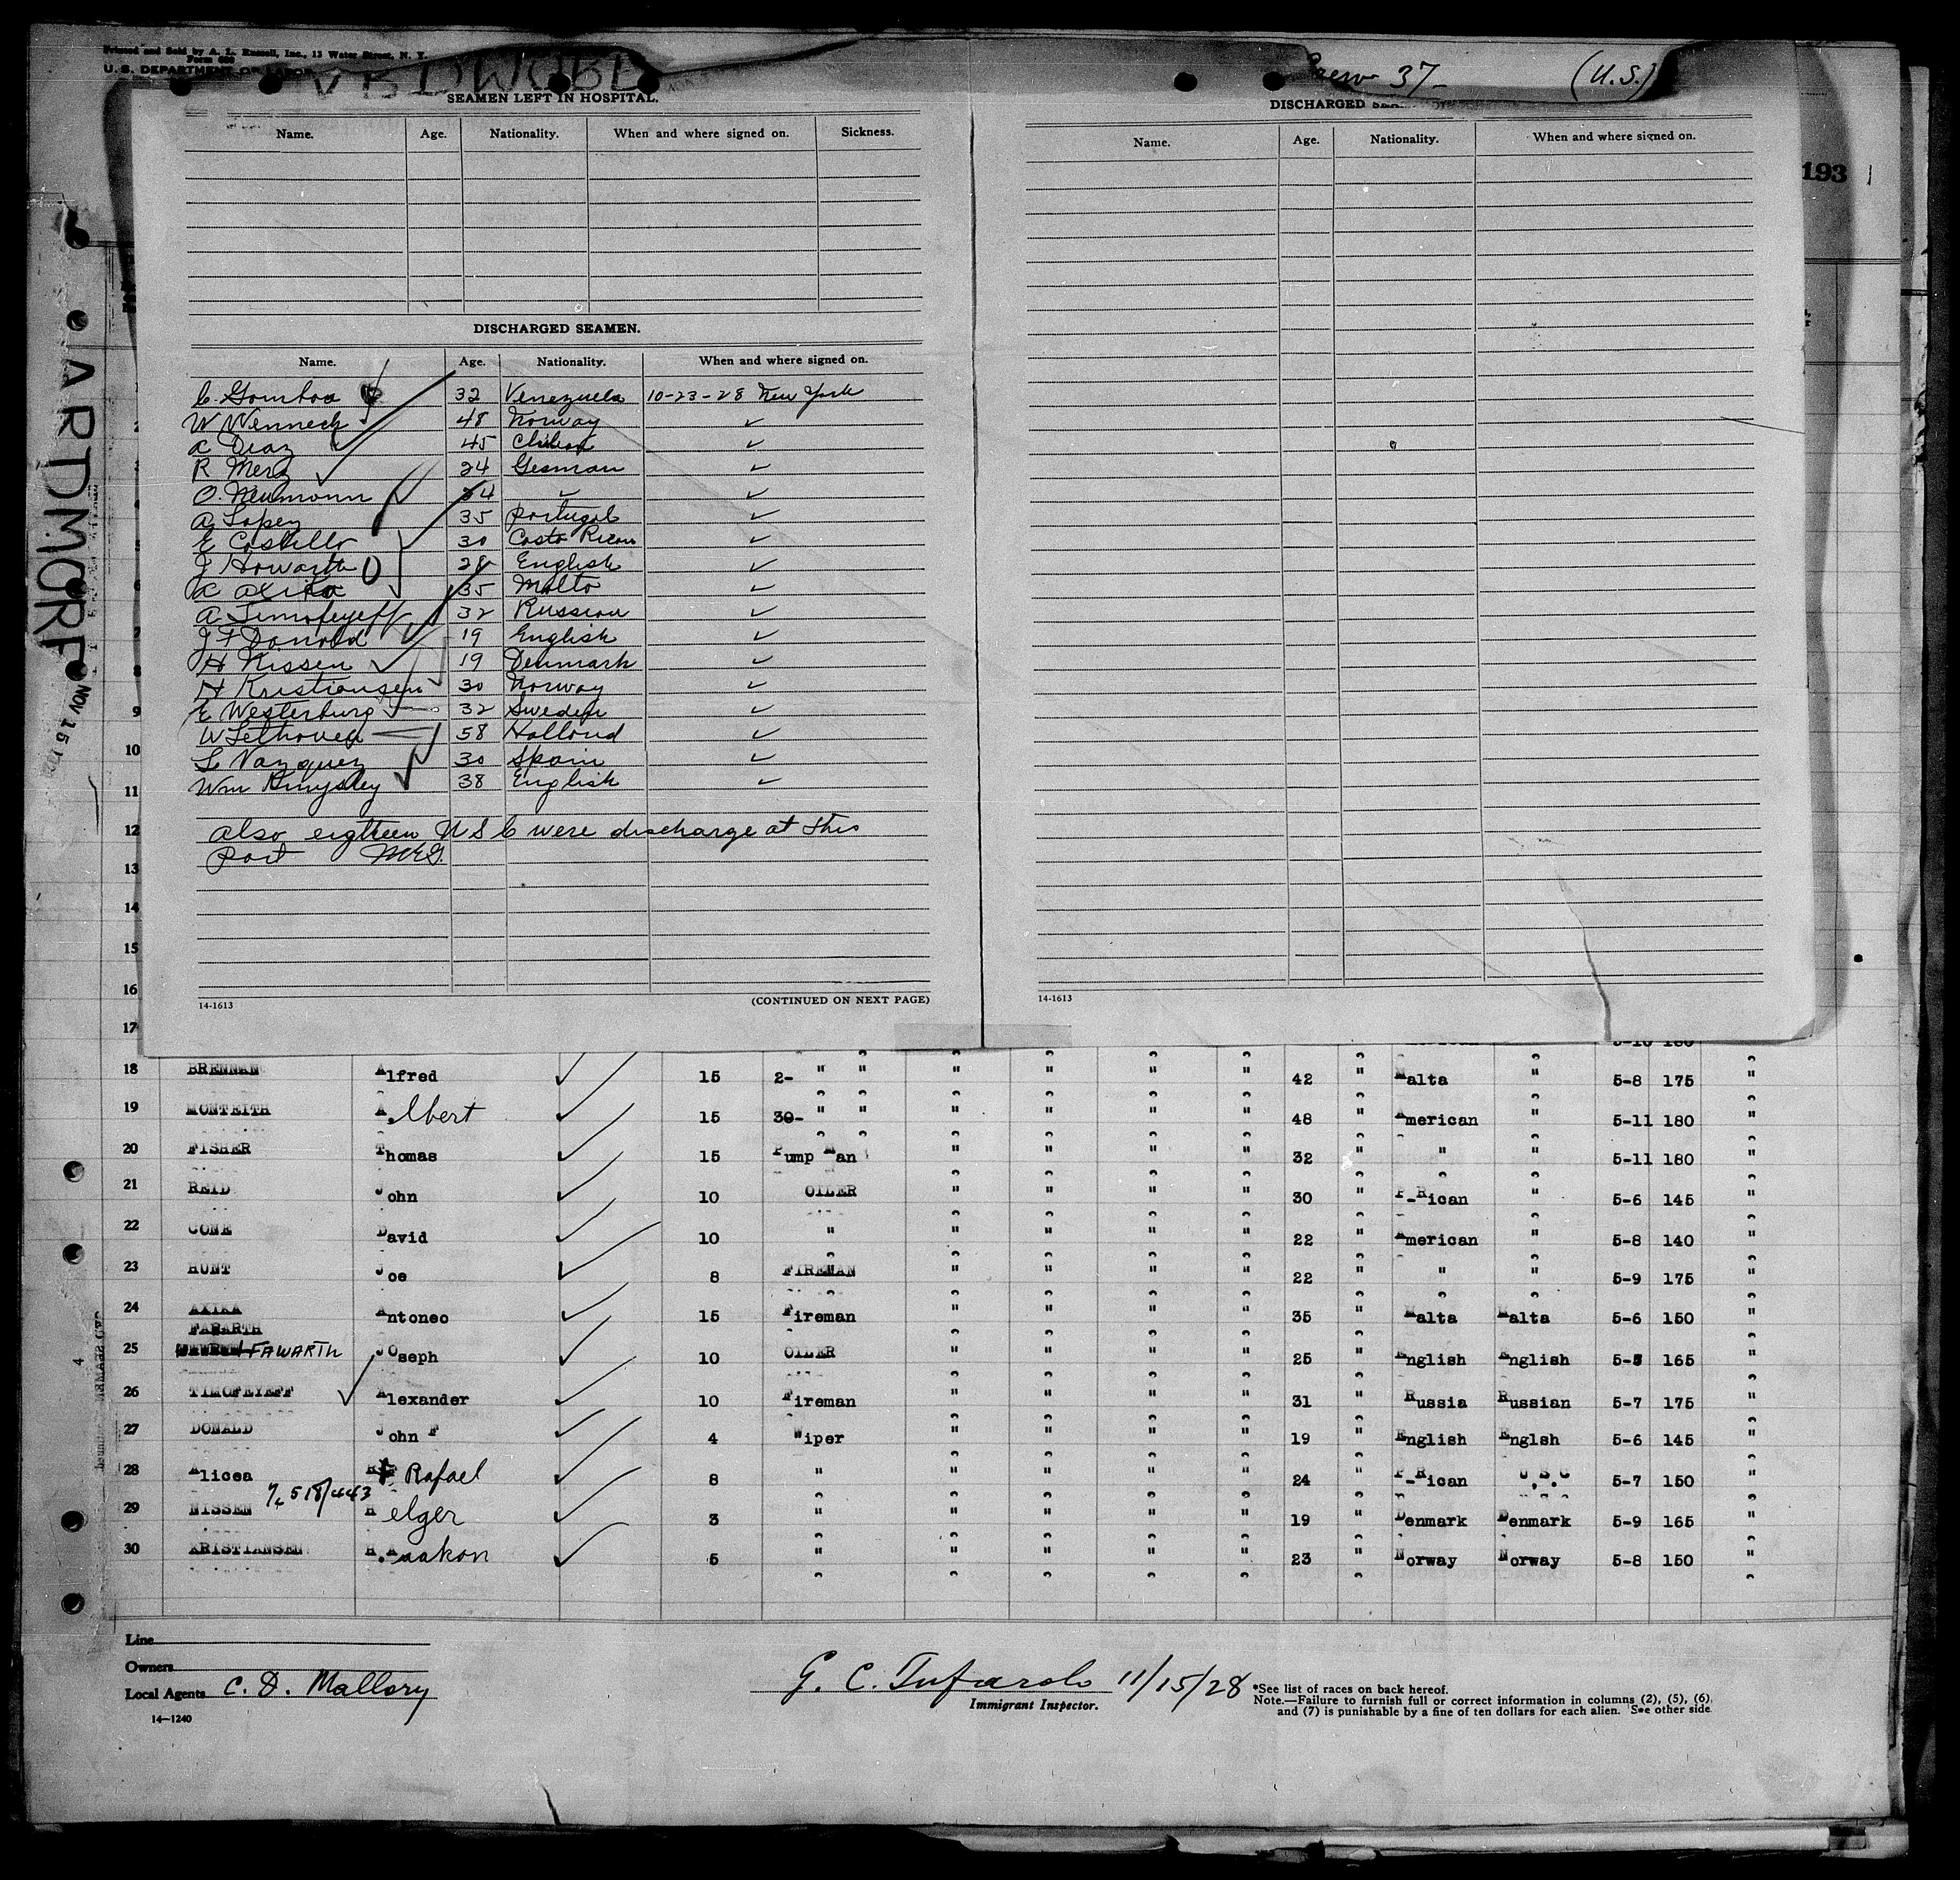 Printed and Sold by A. L. Russell, Inc., 13 Water Street, N. Y.
U. S. DEPARTMENT OF LABOR
Crew 37- (U.S.)
193
ARDMORE
NOV 15
SEAMEN LEFT IN HOSPITAL.
Name. Age. Nationality. When and where signed on. Sickness.
DISCHARGED SEAMEN.
Name. Age. Nationality. When and where signed on.
C. Gomboa 32 Venezuela 10-23-28 New York
W Wennech 48 Norway ✓
A Diaz 45 Chilean ✓
R Merz 24 German ✓
O. Neumann ✓ ✓
A Lopez 35 Portugal ✓
E Costello 30 Costa Rican ✓
J Howarth 28 English ✓
A Axika 35 Malta ✓
A Timofeyeff 32 Russian ✓
J F Donald 19 English ✓
H Nissen 19 Denmark ✓
H Kristiansen 30 Norway ✓
E Westerburg 32 Sweden ✓
W Selhoven 58 Holland ✓
L. Vazquez 30 Spain ✓
Wm 38 English ✓
also eigtheen U S C were discharge at this
Port MEG.
14-1613 (CONTINUED ON NEXT PAGE)
DISCHARGED
Name. Age. Nationality. When and where signed on.
14-1613
9
10
11
12
13
14
15
16
17
18 BRENNAN Alfred 15 2- " " " " " " 42 " Malta " 5-8 175 "
19 MONTEITH Albert 15 30- " " " " " " 48 " American " 5-11 180 "
20 FISHER Thomas 15 Pump Man " " " " 32 " " " 5-11 180 "
21 REID John 10 OILER " " " " 30 " P-Rican " 5-6 145 "
22 CONE David 10 " " " " " 22 " American " 5-8 140 "
23 HUNT Joe 8 FIREMAN " " " " 22 " " " 5-9 175 "
24 AXIKA Antoneo 15 Fireman " " " " 35 " Malta Malta 5-6 150 "
FAWARTH
25 FAWARTH JOseph 10 OILER " " " " 25 " English English 5-5 165 "
26 TIMOFEYEFF Alexander 10 Fireman " " " " 31 " Russia Russian 5-7 175 "
27 DONALD John F 4 Wiper " " " " 19 " English Englsh 5-6 145 "
28 Alicea Rafael 8 " " " " " 24 " P-Rican U.S.C 5-7 150 "
518/443
29 NISSEN Helger 3 " " " " " 19 " Denmark Denmark 5-9 165 "
30 KRISTIANSEN Haakon 5 " " " " " 23 " Norway Norway 5-8 150 "
Line
Owners
Local Agents C. D. Mallory
14-1240
G. C. Tufarolo 11/15/28
Immigrant Inspector.
*See list of races on back hereof.
Note.—Failure to furnish full or correct information in columns (2), (5), (6),
and (7) is punishable by a fine of ten dollars for each alien. See other side